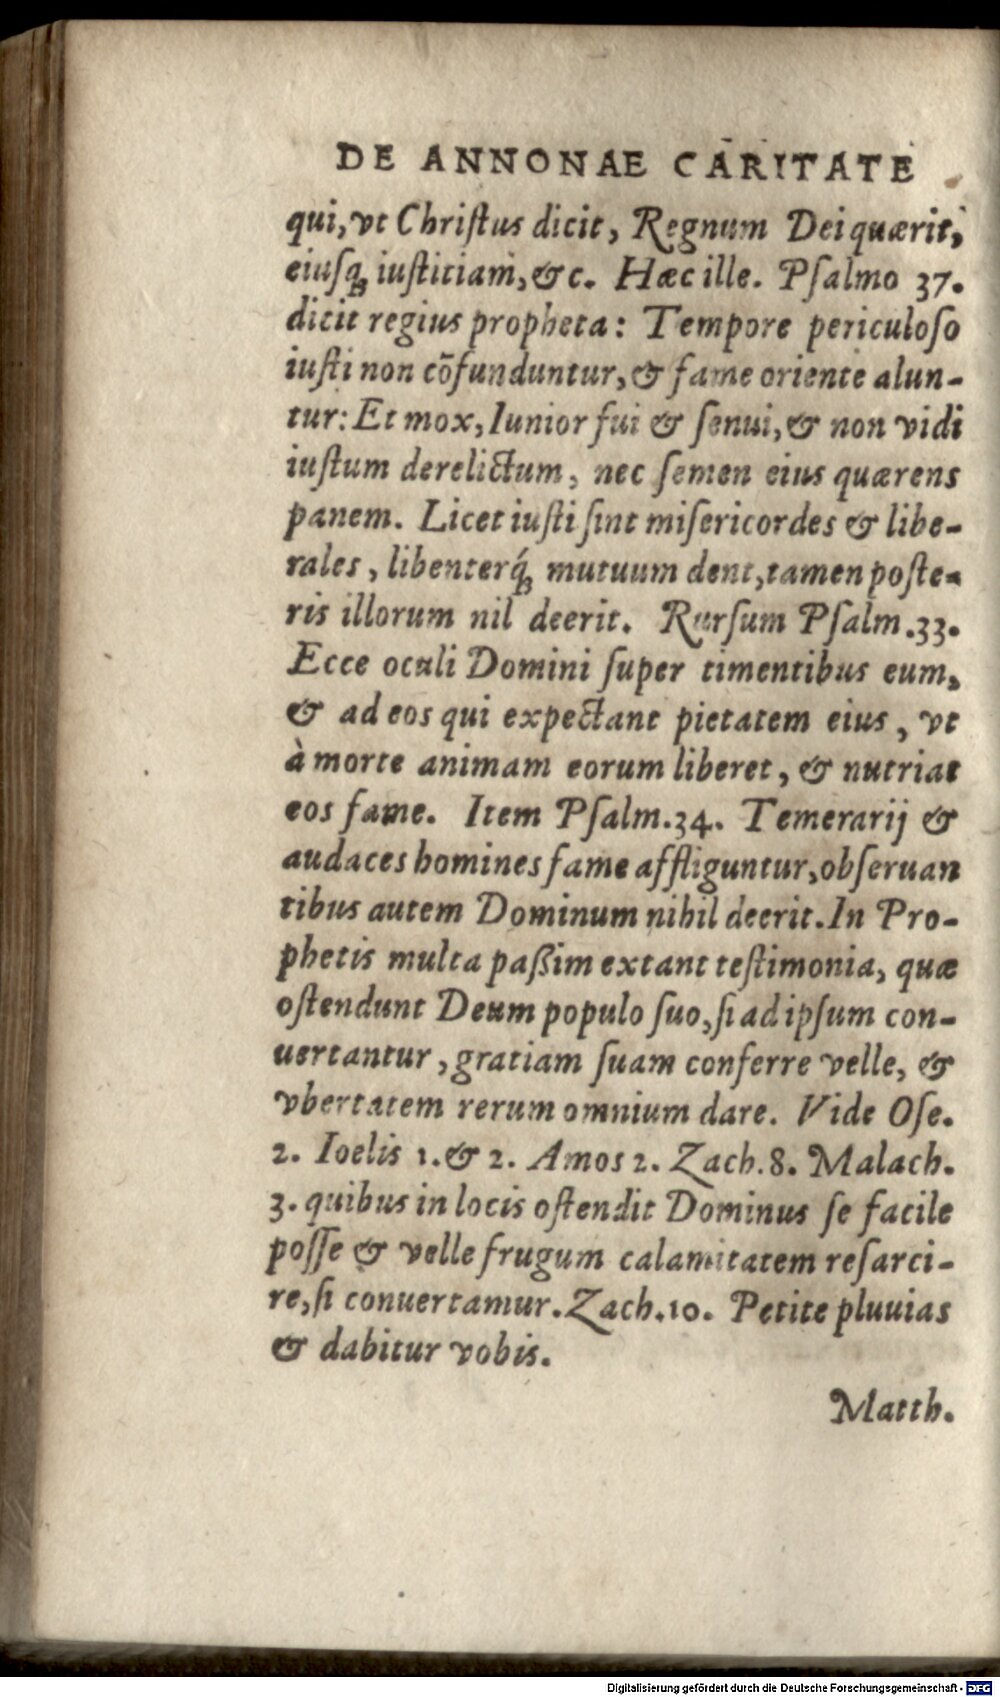 DE ANNONAE CARITATE
qui, vt Christus dicit, Regnum Dei quærit,
eiusq́ꝫ iusticiam, & c. Hæc ille. Psalmo 37.
dicit regius propheta: Tempore periculoso
iusti non cōfunduntur, & fame oriente alun-
tur: Et mox, Iunior fui & senui, & non vidi
iustum derelictum, nec semen eius quærens
panem. Licet iusti sint misericordes & libe-
rales, libenterq́ꝫ mutuum dent, tamen poste-
ris illorum nil deerit. Rursum Psalm. 33.
Ecce oculi Domini super timentibus eum,
& ad eos qui expectant pietatem eius, vt
à morte animam eorum liberet, & nutriat
eos fame. Item Psalm. 34. Temerarij &
audaces homines fame affliguntur, obseruan
tibus autem Dominum nihil deerit. In Pro-
phetis multa paßim extant testimonia, quæ
ostendunt Deum populo suo, si ad ipsum con-
uertantur, gratiam suam conferre velle, &
vbertatem rerum omnium dare. Vide Ose.
2. Ioelis 1. & 2. Amos 2. Zach. 8. Malach.
3. quibus in locis ostendit Dominus se facile
posse & velle frugum calamitatem resarci-
re, si conuertamur. Zach. 10. Petite pluuias
& dabitur vobis.
Matth.
Digitalisierung gefördert durch die Deutsche Forschungsgemeinschaft - DFG